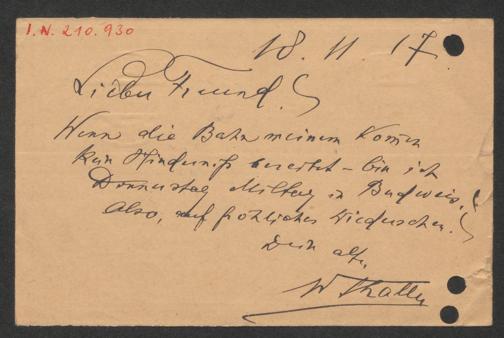 I.N. 210.930
18. 11. 17.
Lieber Freund!
Wenn die Bahn meinem Komen
kein Hinderniß bereitet – bin ich
Donnerstag Mittag in Budweis.
Also, auf fröhliches Wiedersehen.
Dein alter
W Thaller